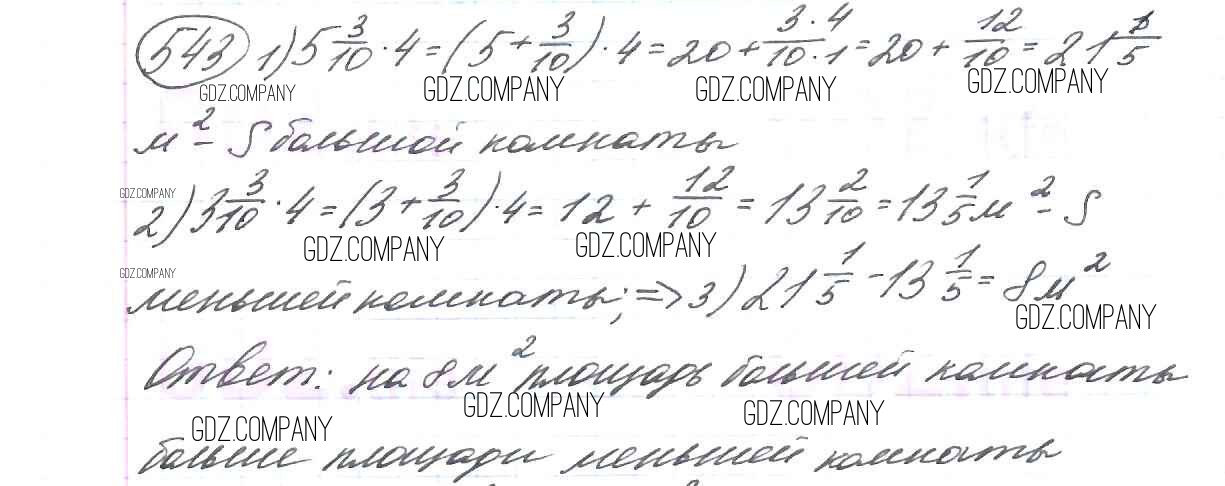 543 1) 5 3/10 · 4 = (5 + 3/10) · 4 = 20 + 3·4/10·1 = 20 + 12/10 = 21 1/5
GDZ.COMPANY GDZ.COMPANY GDZ.COMPANY GDZ.COMPANY
м² - S большой комнаты
GDZ.COMPANY
2) 3 3/10 · 4 = (3 + 3/10) · 4 = 12 + 12/10 = 13 2/10 = 13 1/5 м² - S
GDZ.COMPANY GDZ.COMPANY
GDZ.COMPANY
меньшей комнаты; => 3) 21 1/5 - 13 1/5 = 8 м²
GDZ.COMPANY
Ответ: на 8 м² площадь большей комнаты
GDZ.COMPANY GDZ.COMPANY GDZ.COMPANY
больше площади меньшей комнаты